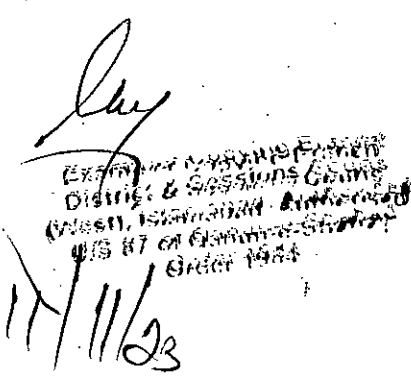 Examiner Copying Branch
District & Sessions Courts
(West), Islamabad Authorized
U/S 87 of Qanun-e-Shahadat
Order 1984
11/11/23